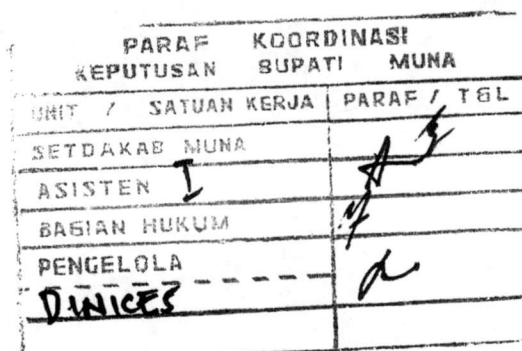 PARAF KOORDINASI
KEPUTUSAN BUPATI MUNA
UNIT / SATUAN KERJA PARAF / TGL
SETDAKAB MUNA
ASISTEN I
BAGIAN HUKUM
PENGELOLA
DINKES